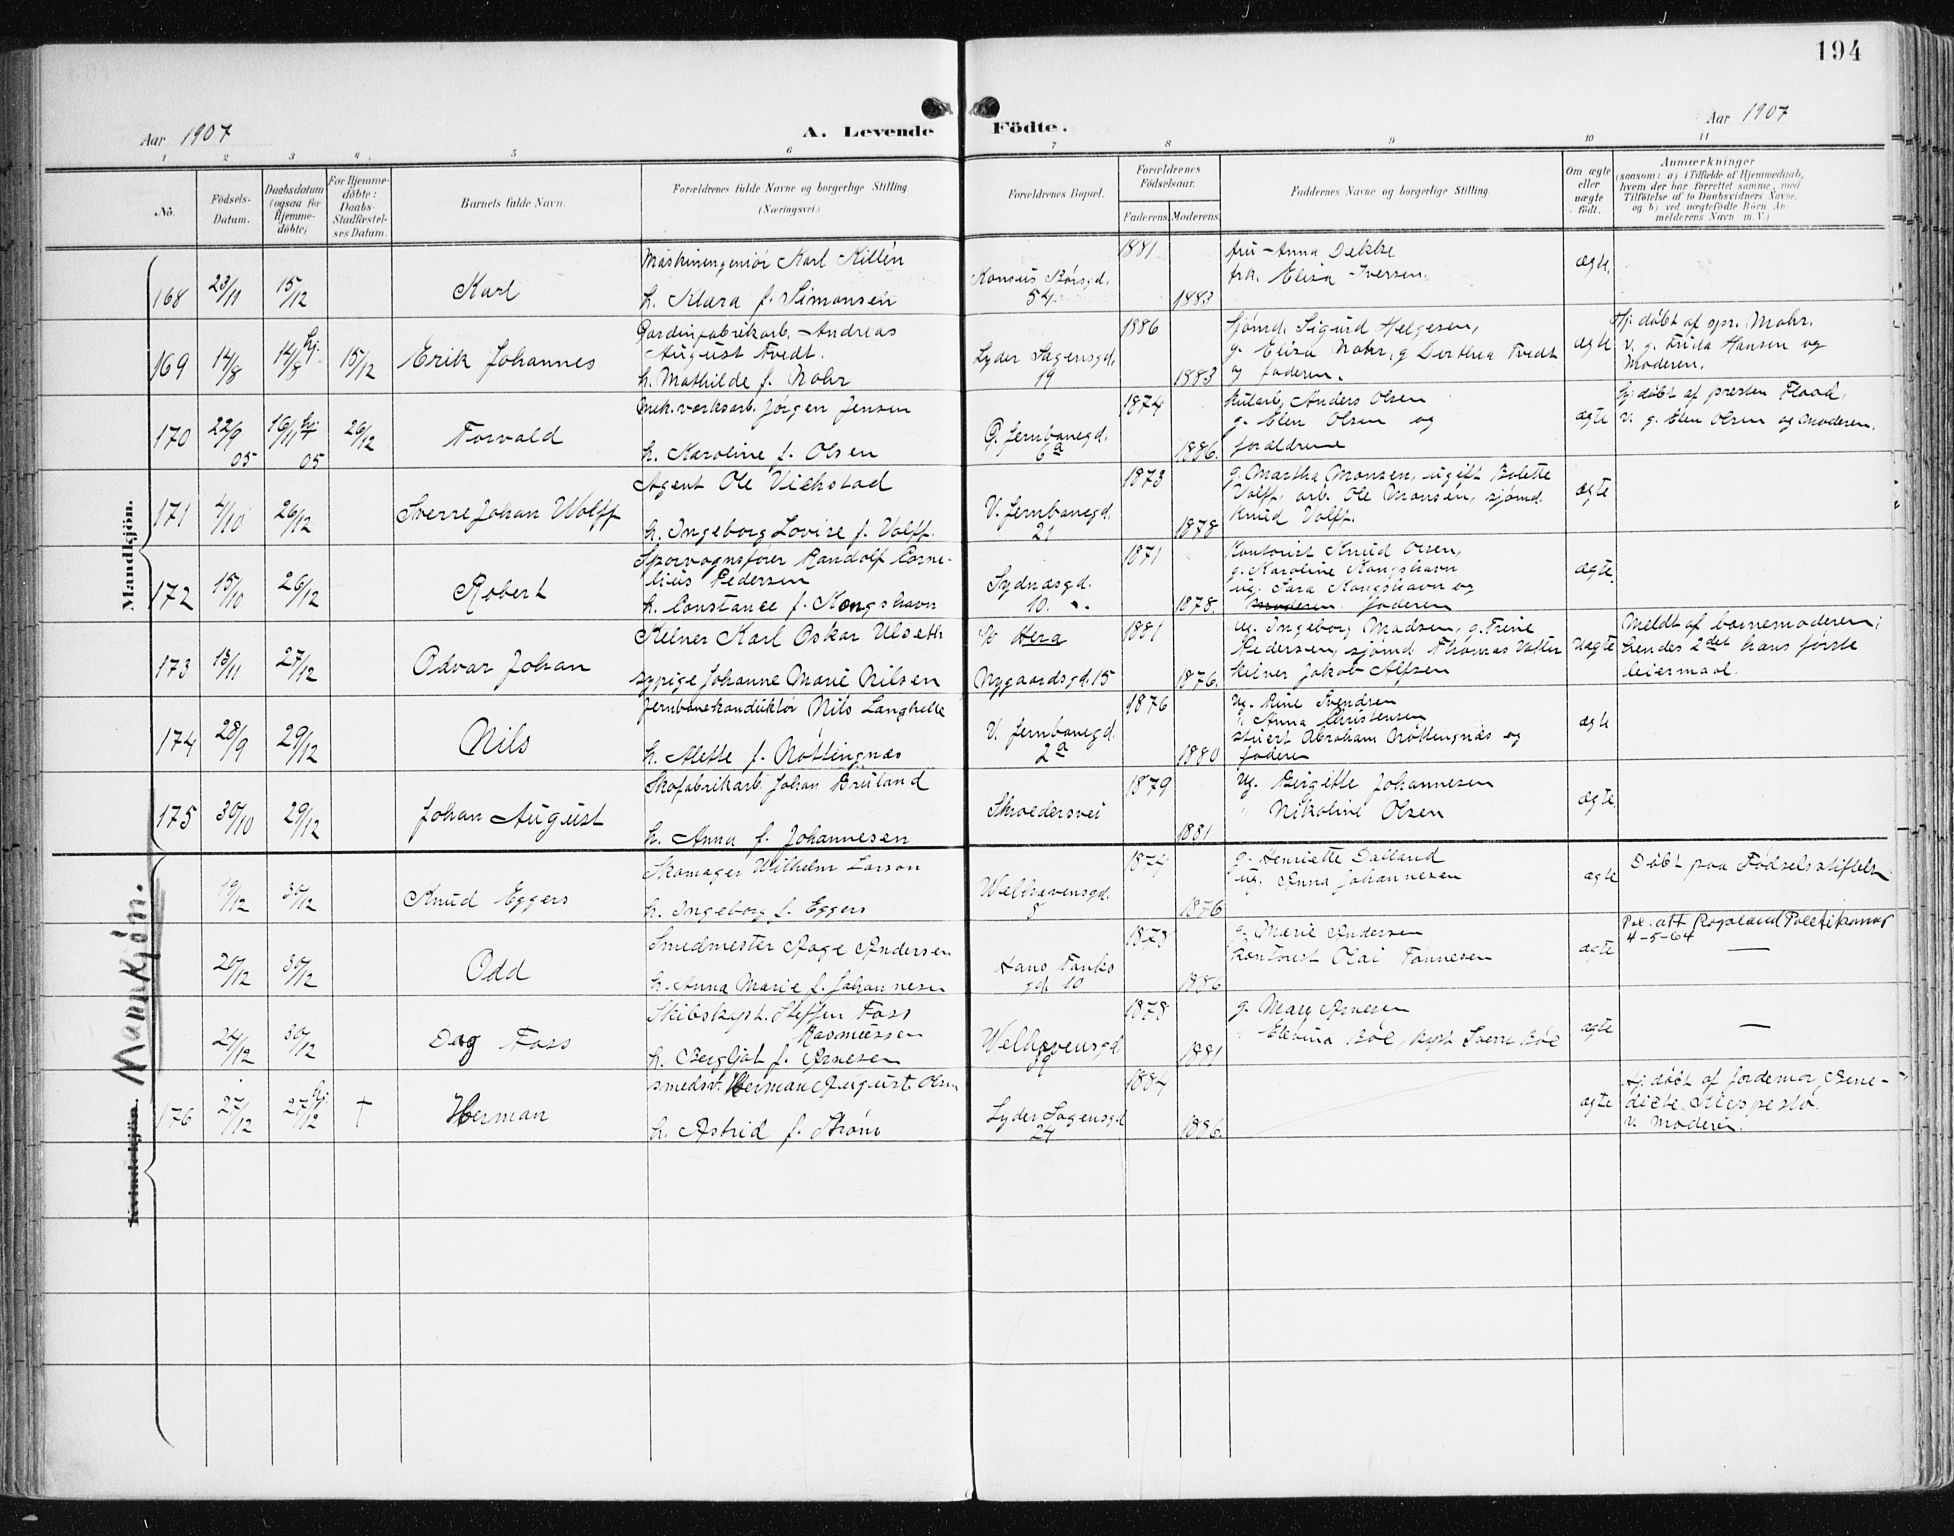 194
Aar 1907
A. Levende Födte.
Aar 1907
1 2 3 4 5 6 7 8 9 10 11
No.
Födsels-
Datum.
Daabsdatum
(ogsaa for
Hjemme-
döbte)
For Hjemme-
döbte:
Daabs-
Stadfæstel-
ses Datum.
Barnets fulde Navn.
Forældrenes fulde Navne og borgerlige Stilling
(Næringsvei.)
Forældrenes Bopæl.
Forældrenes
Födselsaar.
Faderens. Moderens.
Faddernes Navne og borgerlige Stilling.
Om ægte
eller
uægte
født.
Anmærkninger
(saasom: a) i Tilfælde af Hjemmedaab,
hvem der har forrettet samme, med
Tilföielse af to Daabsvidners Navne,
og b) ved uægtefödte Börn An-
melderens Navn m. V.)
Mandkjön.
168 23/11 15/12 Karl
Maskiningeniør Karl Killén
h. Klara f. Simonsen
54
1881 1883
fru Anna Dekke
frk. Eliza Iversen.
ægte
169 14/8 14/8 hj. 15/12 Erik Johannes
Gardinfabrikarb. Andreas
August Tvedt.
h. Mathilde f. Mohr
Lyder Sagensgd.
19
1886 1883
Sjømd. Sigurd Helgesen,
g. Eliza Mohr, g Dorthea Tvedt
og faderen.
ægte
Hj. døbt af spr. Mohr.
v. g. Frida Hansen og
Moderen.
170 22/9 05 16/11 hj. 05 26/12 Torvald
Mek. værksarb. Jørgen Jensen
h. Karoline f. Olsen
Ø. Jernbanegd.
6a
1874 1886.
Anders Olsen
g. Elen Olsen og
forældrene
ægte
hj. døbt af presten Flood,
v. g. Elen Olsen og Moderen.
171 4/10 26/12 Sverre Johan Wolff
Agent Ole Vichstad
h. Ingeborg Lovise f. Volff.
V. Jernbanegd.
21
1873 1878
g. Martha Monsen, ugift Bolette
Volff, arb. Ole Monsen, sjømd.
Knud Volff.
ægte
172 15/10 26/12 Robert
Sporvognsfører Randolf Corne-
lius Pedersen
h. Constance f. Kongshavn
Sydnæsgd.
10.
1871 1878.
Kontorist Knud Olsen,
g. Karoline Kongshavn
ug. Sara Kongshavn og
Moderen faderen
ægte.
173 13/11 27/12 Odvar Johan
Kelner Karl Oskar Ulseth
sypige Johanne Marie Nilsen
Hera
Nygaardsgd. 15
1881 1876.
ug. Ingeborg Madsen, g. Trine
Pedersen, sjømd. Thomas
Kelner Jakob Alfsen
Uægte
Meldt af barnemoderen;
hendes 2det hans første
leiermaal.
174 28/9 29/12 Nils
Jernbanekonduktør Nils Langhelle
h. Alette f. Nøttingnæs
V. Jernbanegd.
2a
1876 1880
Ug. Rine Svendsen
Anna Christensen
Abraham Nøttingnæs og
faderen
ægte
175 30/10 29/12 Johan August
Skofabrikarb. Johan Breiland
h. Anna f. Johannesen
Skroedersvei
1879 1881
Ug. Birgitte Johannesen
" Nikoline Olsen
ægte
Kvindekjön. Mannkjøn.
19/12 30/12 Knud Eggers
Skomager Wilhelm Larson
h. Ingeborg f. Eggers
Welhavensgd.
8
1874 1876
g. Henriette Dalland
ug. Anna Johannesen
ægte
Døbt paa Fødselsstiftels.
20/12 30/12 Odd
Smedmester Aage Andersen
h. Anna Marie f. Johannesen
Hans Tanks
gd. 10
1873 1886
g. Marie Andersen
Kontorist Olai Tønnesen
ægte
Rogaland
4-5-64
—
24/12 30/12 Dag Foss
Skibskapt. Steffen Foss
Rasmussen
h. Bergljot f. Arnesen
Welhavensgd
39
1878 1881
g. Mary Arnesen
Kapt. Sverre Bøe
ægte
—
176 27/12 27/12 hj. † Herman
smedsv. Herman August Olsen
h. Astrid f. Strøm
Lyder Sagensgd
24
1884 1886.
ægte
Hj. døbt af jordemor Bene-
dicte Kleppestø.
v. Moderen.